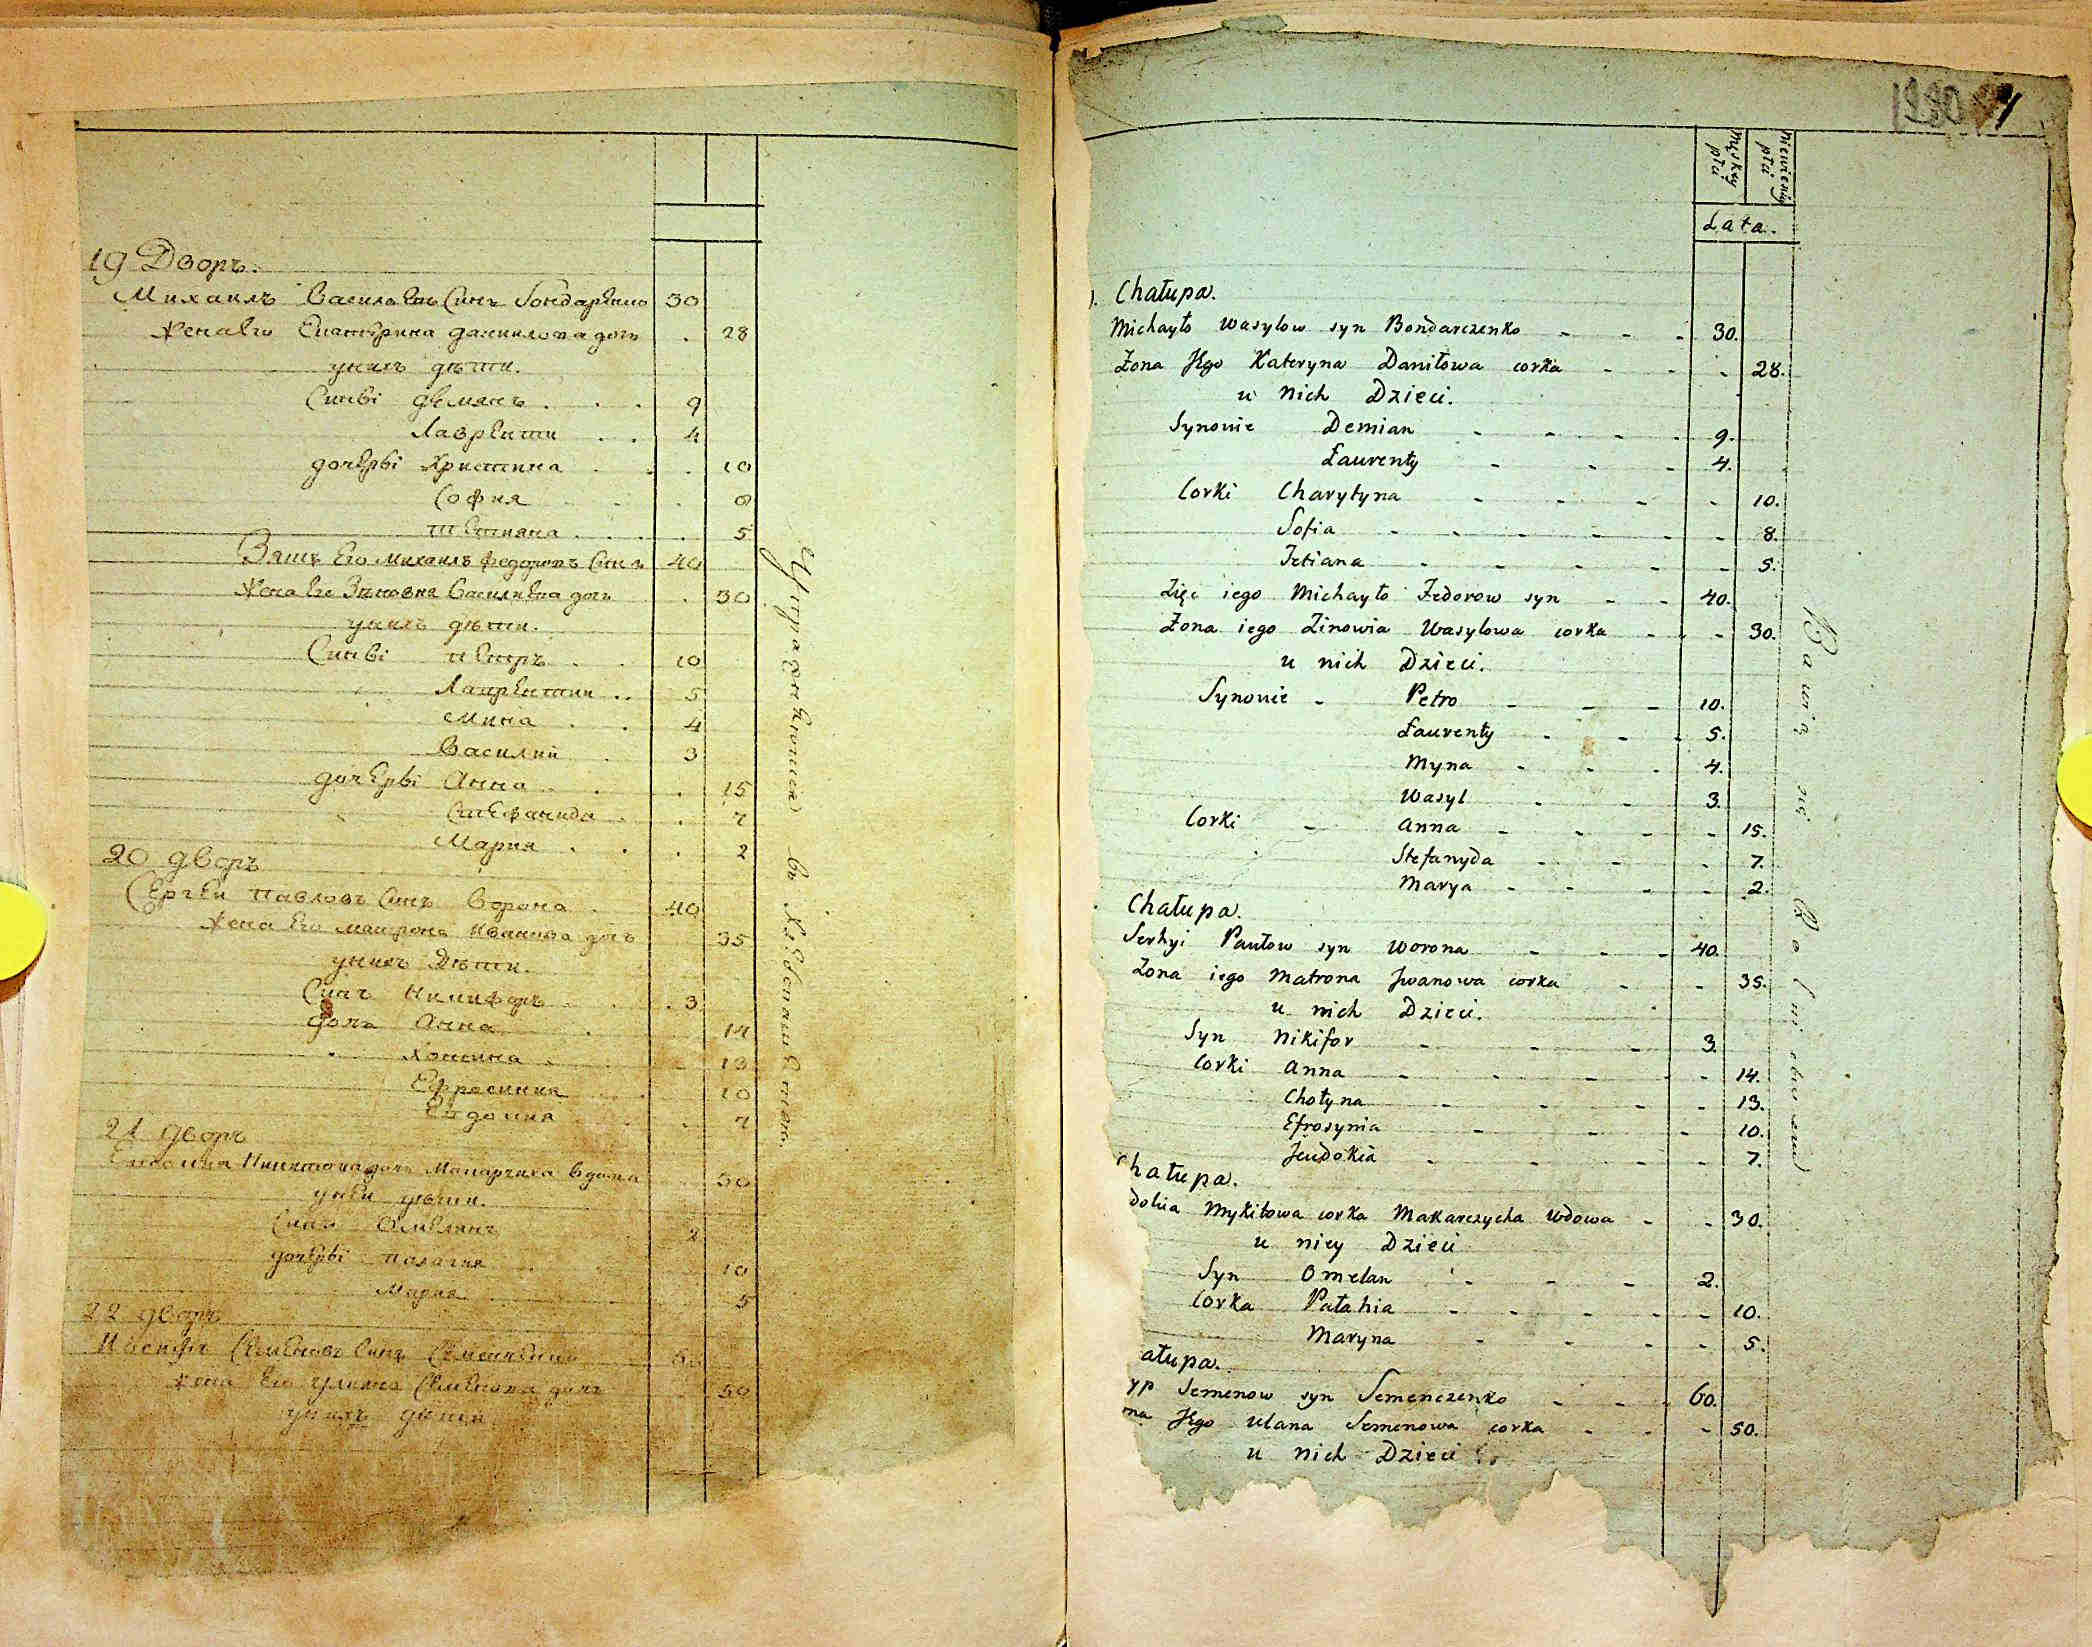 19 Дворъ.
Михаилъ Васильевъ Синъ Бондаренко 30
Жена Его Екатерина Даниилова дочь 28
у нихъ дѣти.
Синві Демянъ 9
Лаврентии 4
дочерві Христина 10
София 8
Тетияна 5
Зять Его Михаилъ Федоровъ Синъ 40
Жена Его Зѣновия Василиева дочь 30
у нихъ дѣти.
Синві Петръ 10
Лаврентии 5
Мина 4
Василий 3
дочерві Анна 15
Стефанида 7
Мария 2
20 дворъ
Сергеи Павловъ Синъ Ворона 40
Жена Его Матрона Иванова дочь 35
у нихъ Дѣти.
Синъ Никифоръ 3
дочь Анна 14
Хотина 13
Ефросиния 10
Евдокия 7
21 дворъ
Никитова дочь Макарчиха вдова 30
у неи дѣти.
Синъ Омелянъ 2
дочерві Палагия 10
Мария 5
22 дворъ
Семеновъ Синъ Семенченко
Жена Его Уляна Семенова дочь 50
у нихъ дѣти
Упражняются въ хлебопашествѣ.
1220 71
męskiey płci
niewieściey płci
Lata.
Chałupa.
Michayło Wasylow syn Bondarczenko - - - 30.
Żona Jego Kateryna Daniłowa corka - - - 28.
u Nich Dzieci.
Synowie Demian - - - - 9.
Ławrenty - - - 4.
Corki Charytyna - - - - 10.
Sofia - - - - - - 8.
Tetiana - - - - - 5.
Zięć iego Michayło Fedorow syn - - 40.
Żona iego Zinowia Wasylowa corka - - - 30.
u nich Dzieci.
Synowie - Petro - - - 10.
Ławrenty - - - 5.
Myna - - - 4.
Wasyl - - 3.
Corki - Anna - - - - 15.
Stefanyda - - - - 7.
Marya - - - - 2.
Chałupa.
Serhyi Pawłow syn Worona - - - 40.
Żona iego Matrona Jwanowa corka - - 35.
u nich Dzieci.
Syn Nikifor - - - 3.
Corki Anna - - - - - 14.
Chotyna - - - - 13.
Efrosynia - - - 10.
Jewdokia - - - - 7.
Chałupa.
dokia Mykitowa corka Makarczycha wdowa - - 30.
u niey Dzieci
Syn Omelan - - - 2.
Corka Pałahia - - - - - 10.
Maryna - - - - 5.
ałupa.
yp Semenow syn Semenczenko - - - 60.
na Jego Ulana Semenowa corka - - - 50.
u nich Dzieci
Bawią się Rolnictwem